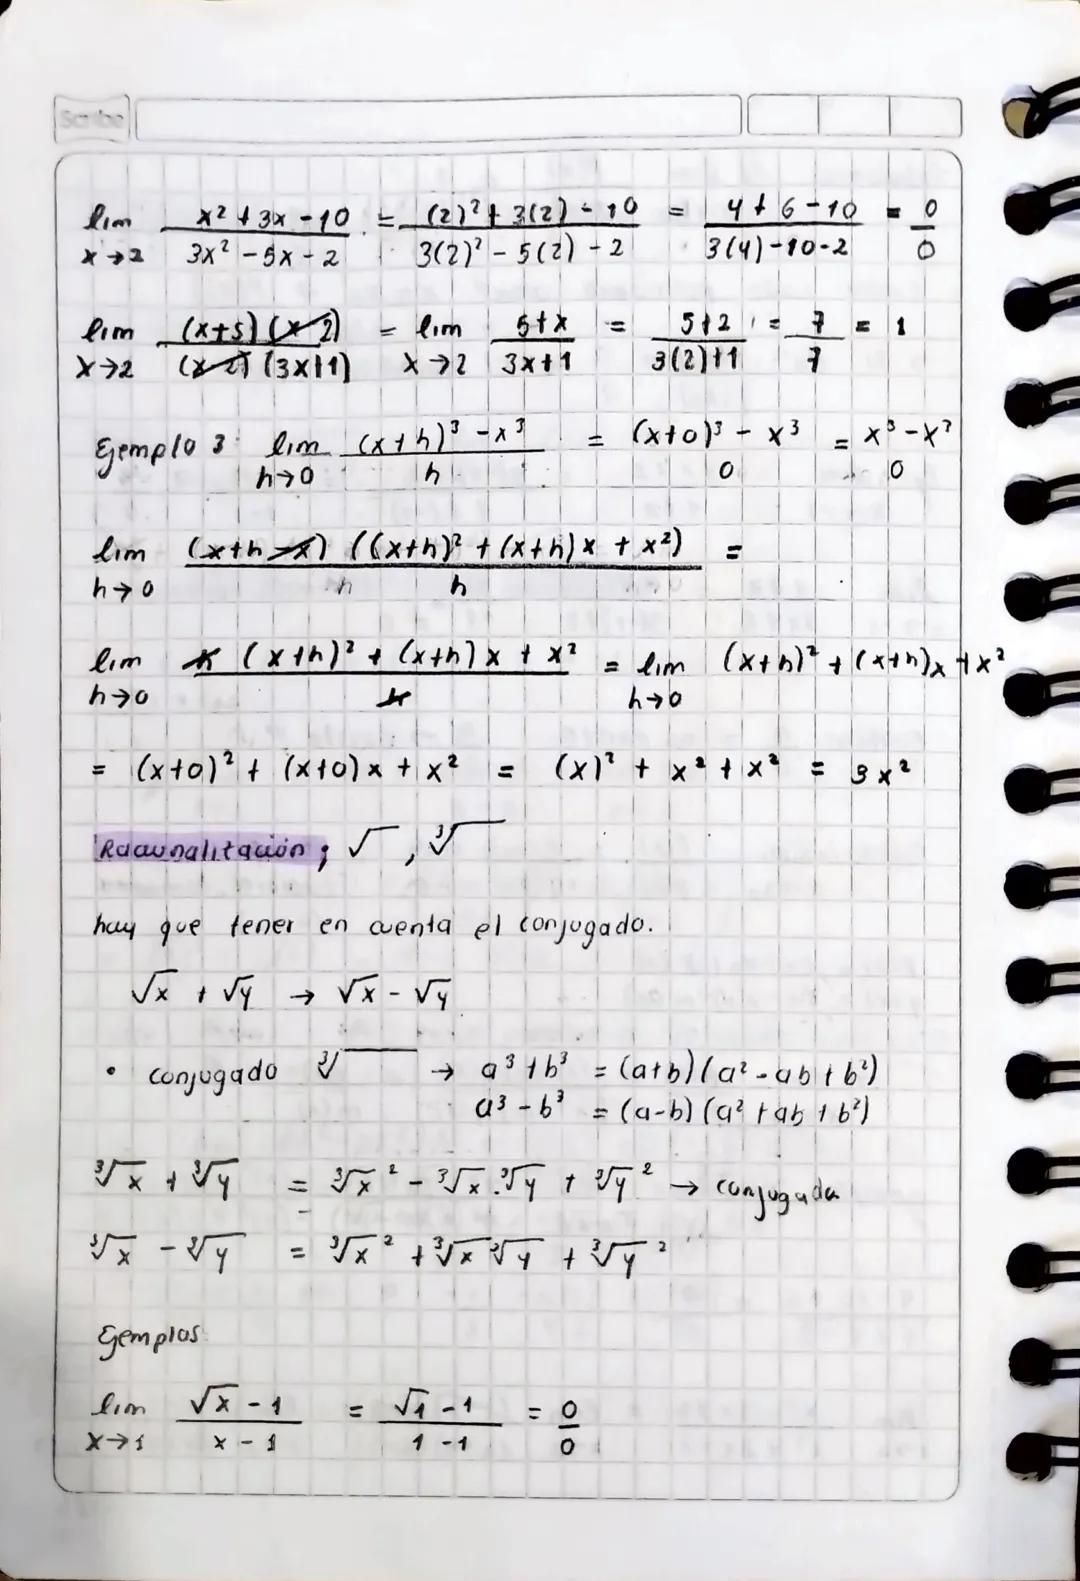 Scribe
lim x→2 (x² + 3x - 10)/(3x² - 5x - 2) = ((2)² + 3(2) - 10)/(3(2)² - 5(2) - 2) = (4 + 6 - 10)/(3(4) - 10 - 2) = 0/0
lim x→2 (x+5)(x-2)/(x-2)(3x+1) = lim x→2 (5+x)/(3x+1) = (5+2)/(3(2)+1) = 7/7 = 1
Ejemplo 3: lim h→0 ((x+h)³ - x³)/h = ((x+0)³ - x³)/0 = (x³ - x³)/0
lim h→0 (x+h-x) ((x+h)² + (x+h)x + x²)/h =
lim h→0 h (x+h)² + (x+h)x + x²/h = lim h→0 (x+h)² + (x+h)x + x²
= (x+0)² + (x+0)x + x² = (x)² + x² + x² = 3x²
Racionalización; √ , ∛
hay que tener en cuenta el conjugado.
√x + √y → √x - √y
• conjugado ∛ → a³ + b³ = (a+b)(a² - ab + b²)
a³ - b³ = (a-b)(a² + ab + b²)
∛x + ∛y = ∛x² - ∛x . ∛y + ∛y² → conjugada
∛x - ∛y = ∛x² + ∛x ∛y + ∛y² "
Ejemplos:
lim x→1 (√x - 1)/(x - 1) = (√1 - 1)/(1 - 1) = 0/0